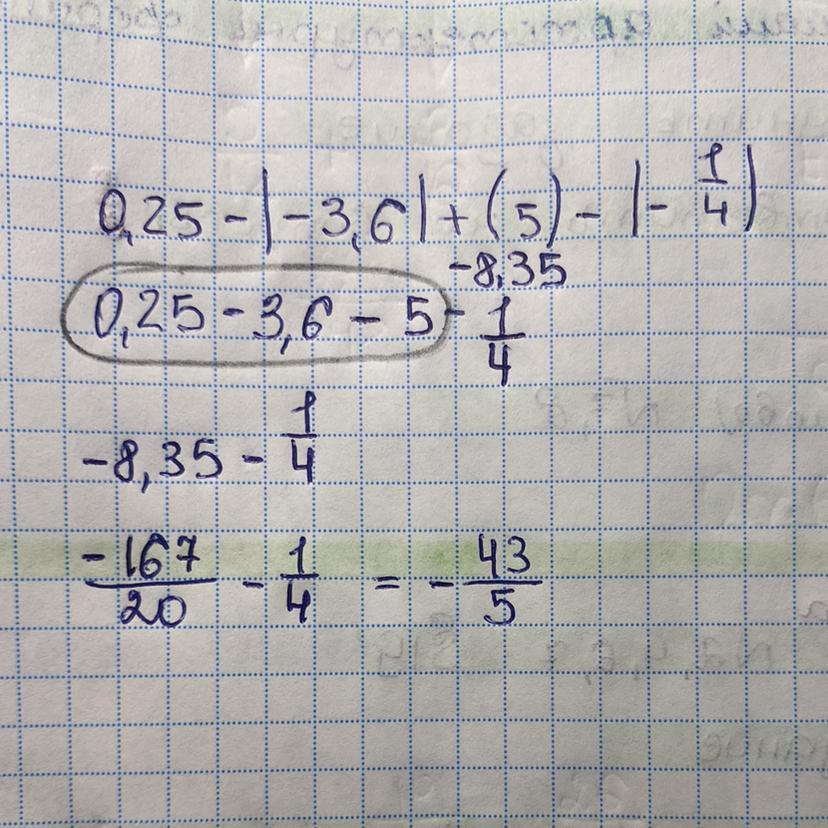 0,25 - |-3,6| + (5) - |- 1/4|
-8,35
0,25 - 3,6 - 5 - 1/4
-8,35 - 1/4
-167/20 - 1/4 = - 43/5